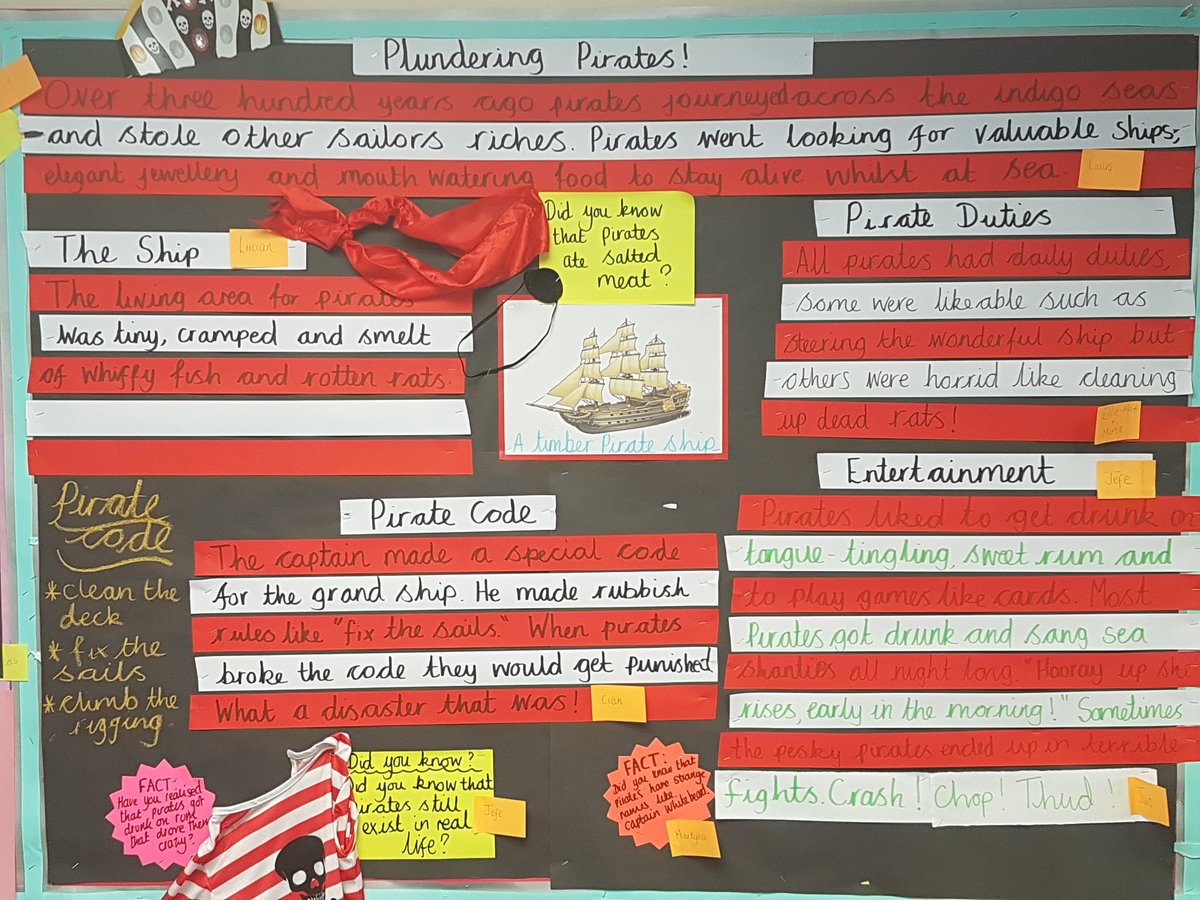 Plundering Pirates!
Over three hundred years ago pirates journeyed across the indigo seas
and stole other sailors riches. Pirates went looking for valuable ships,
elegant jewellery and mouth watering food to stay alive whilst at sea.
The Ship
Lucian
The living area for pirates
was tiny, cramped and smelt
of whiffy fish and rotten rats.
Did you know
that Pirates
ate salted
meat?
A timber Pirate ship
Pirate Duties
All pirates had daily duties,
some were likeable such as
steering the wonderful ship but
others were horrid like cleaning
up dead rats!
Pirate
code
*clean the
deck
* fix the
sails
*climb the
rigging
Pirate Code
The captain made a special code
for the grand ship. He made rubbish
rules like "fix the sails." When pirates
broke the code they would get punished
What a disaster that was!
Cian
Entertainment
Jefe
Pirates liked to get drunk on
tongue-tingling, sweet rum and
to play games like cards. Most
Pirates got drunk and sang sea
shanties all night long. "Hooray up she
rises, early in the morning!" Sometimes
the pesky pirates ended up in terrible
fights. Crash! Chop! Thud!
FACT:
Have you realised
that pirates got
drunk on rum
that drove them
crazy?
Did you know?
Did you know that
pirates still
exist in real
life?
Jefe
FACT:
Did you know that
Pirates have strange
names like
Captain Whitebeard
Martyna